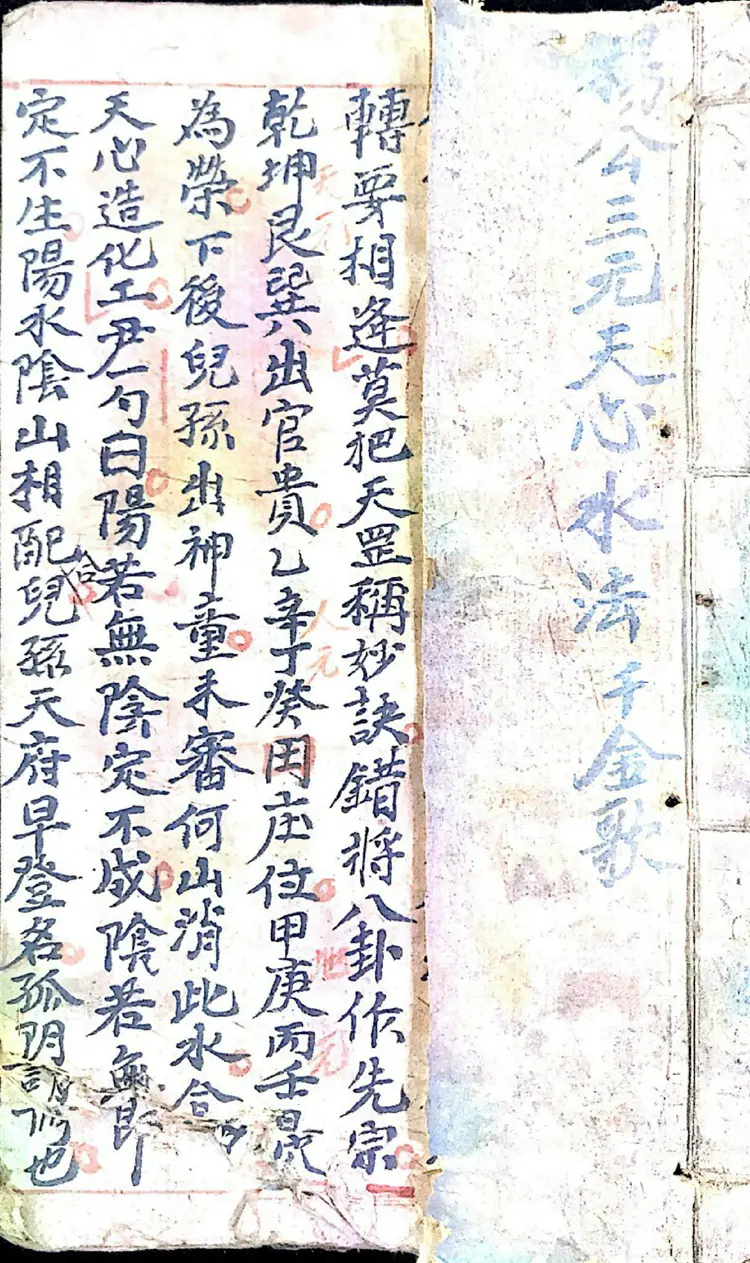 楊公三元天心水法千金歌
轉要相逢莫把天罡稱妙訣錯將八卦作先宗
乾坤艮巽出官貴乙辛丁癸田庄位甲庚丙壬最
天元
人元
地元
為榮下後兒孫出神童未審何山消此水合
天心造化工尹勺曰陽若無陰定不成陰若無即
定不生陽水陰山相配合兒孫天府早登名孤阴謂也